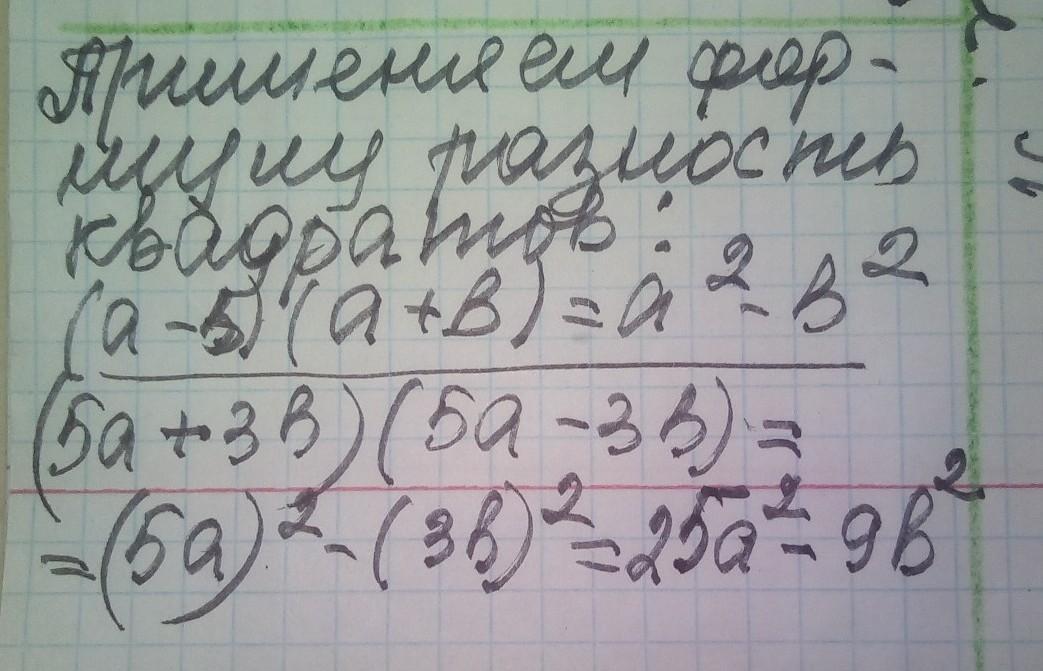 Применяем фор-
мулу разность
квадратов:
(a-b)(a+b)=a²-b²
(5a+3b)(5a-3b)=
=(5a)²-(3b)²=25a²-9b²